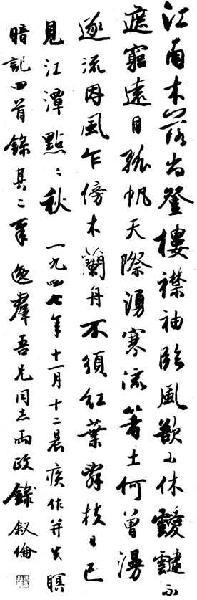 江南木落尚登樓襟袖臨風歎小休靉靆不
遮窮遠目孤帆天際湧寒流箸土何曾
逐流因風乍傍木蘭舟不須紅葉辭枝日已
見江潭點點秋 一九四七年十一月十二晨疾作並失瞑
暗記四首錄其二奉逸群吾兄同志兩政 叙倫